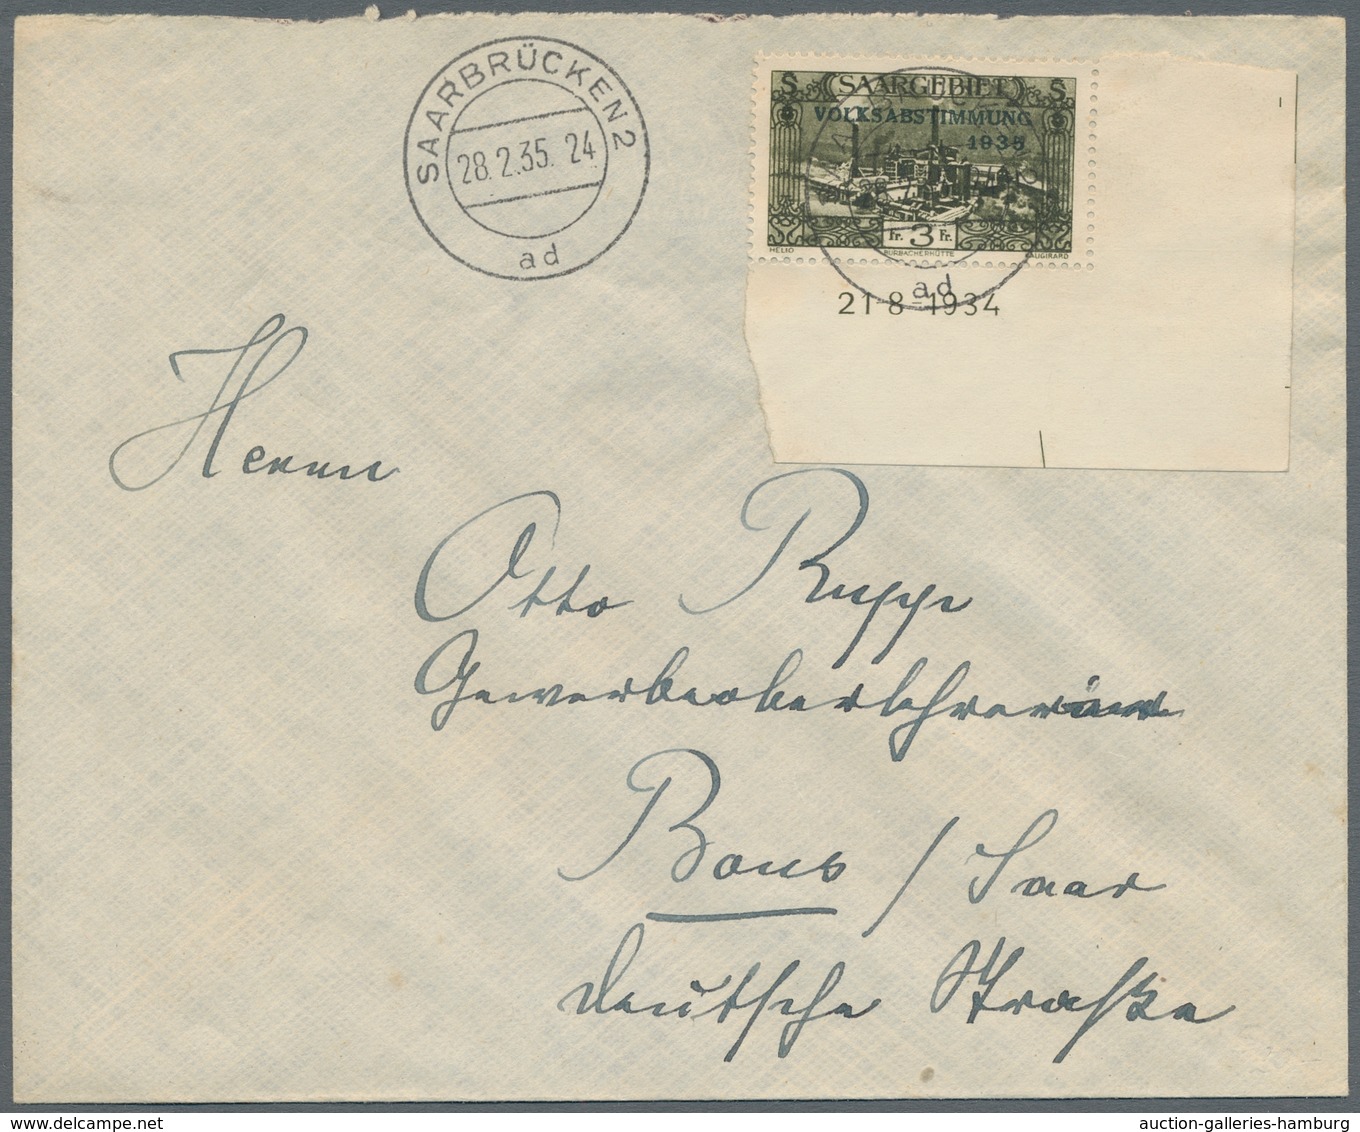 SAARBRÜCKEN 2
28.2.35. 24
ad
S SAARGEBIET S
VOLKSABSTIMMUNG
1935
Fr. 3 Fr.
HELIO BURBACHERHÜTTE VAUGIRARD
ad
21-8-1934
Herrn
Otto Rupp
Gewerbeoberlehrer
Bous / Saar
deutsche Straße
auction-galleries-hamburg